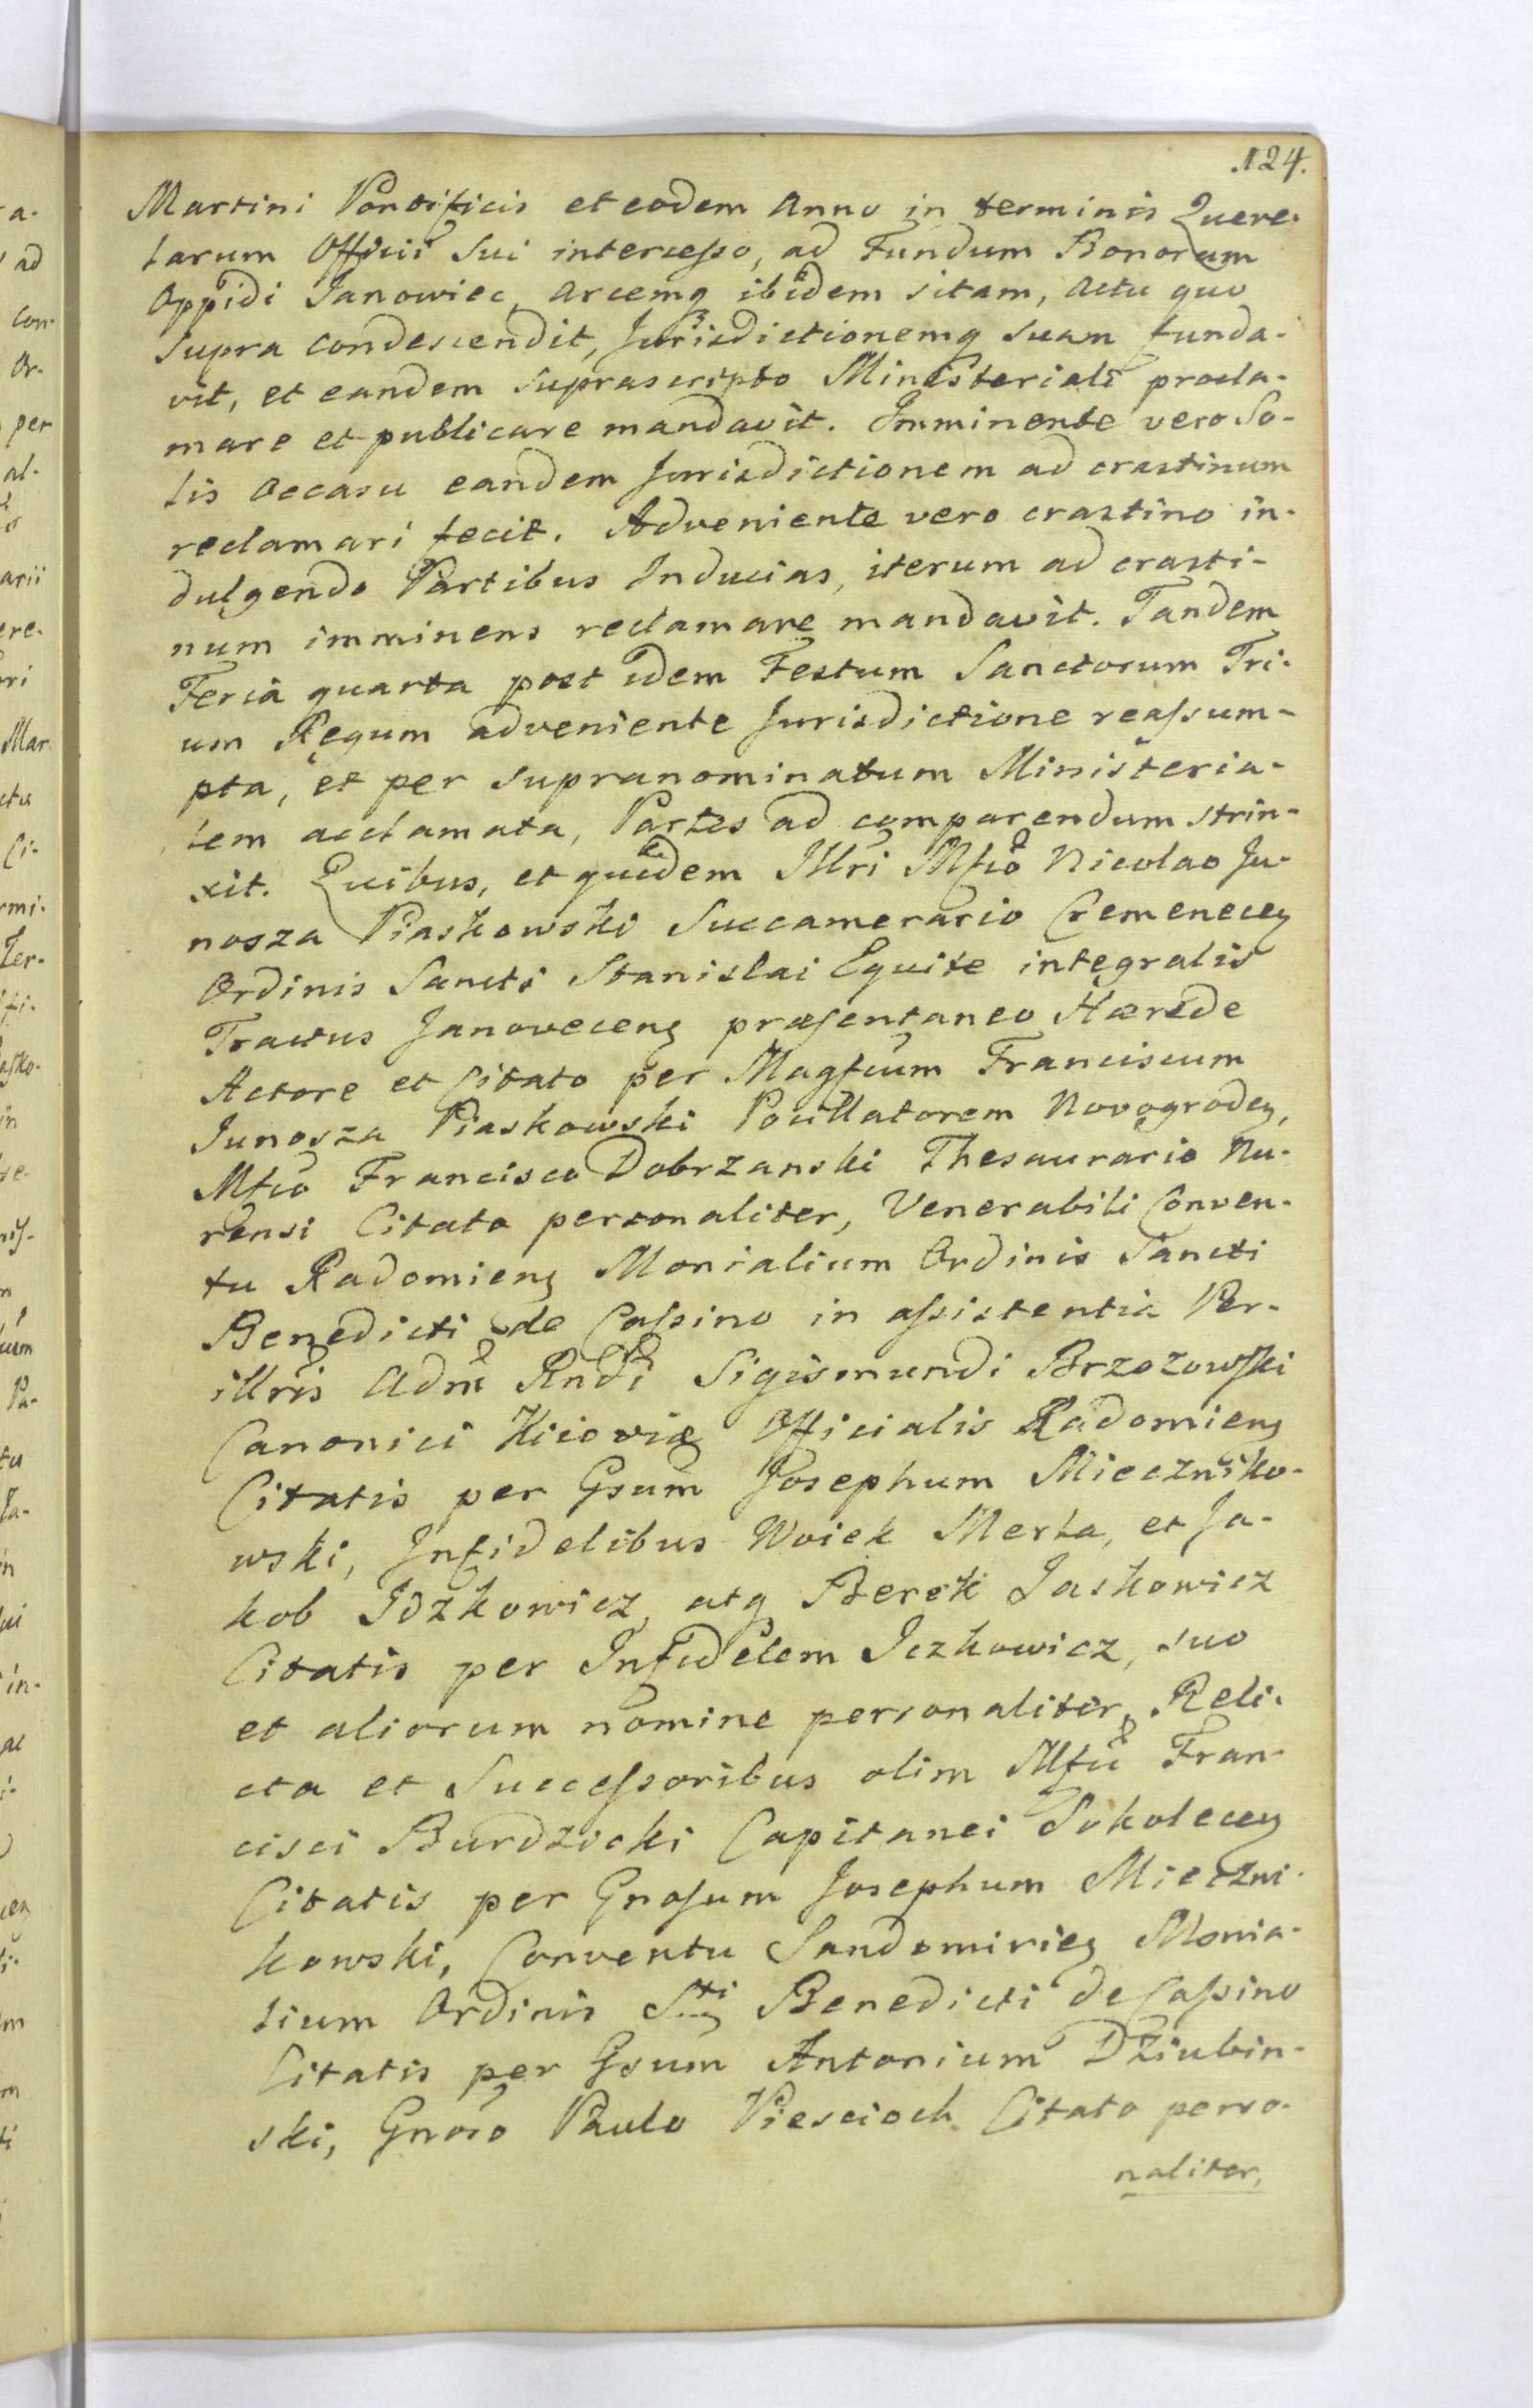 124.
Martini Pontificis et eodem Anno in terminis Quere-
larum Officii Sui intercesso, ad Fundum Bonorum
Oppidi Janowiec, Arcemq ibidem sitam, Actu quo
supra condescendit, Jurisdictionemq suam funda-
vit, et eandem suprascripto Ministeriali procla-
mare et publicare mandavit. Imminente vero So-
lis Occasu eandem Jurisdictionem ad crastinum
reclamari fecit. Adveniente vero crastino in-
dulgendo Partibus Inducias, iterum ad crasti-
num imminens reclamare mandavit. Tandem
Feria quarta post idem Festum Sanctorum Tri-
um Regum adveniente Jurisdictione reassum-
pta, et per supranominatum Ministeria-
lem acclamata, Partes ad comparendum strin-
xit. Quibus, et quidem Illri Mfco Nicolao Ju-
nosza Piaskowski Succamerario Cremenecen
Ordinis Sancti Stanislai Equite integralis
Tractus Janovecens praesentaneo Haerede
Actore et Citato per Magfcum Franciscum
Junosza Piaskowski Pocillatorem Novogroden,
Mfco Francisco Dobrzanski Thesaurario Nu-
rensi Citato personaliter, Venerabili Conven-
tu Radomiens Monialium Ordinis Sancti
Benedicti de Cassino in assistentia Per-
illris Adm Rndi Sigismundi Brzozowski
Canonici Kijoviae Officialis Radomiens
Citatis per Gsum Josephum Mieczniko-
wski, Infidelibus Woiek Merka, et Ja-
kob Idzkowicz, atq Berek Jaskowicz
Citatis per Infidelem Iczkowicz, suo
et aliorum nomine personaliter, Reli-
cta et Successoribus olim Mfci Fran-
cisci Burdzicki Capitanei Sokolecen
Citatis per Gnosum Josephum Mieczni-
kowski, Conventu Sandomirien Monia-
lium Ordinis Sti Benedicti de Cassino
Citatis per Gsum Antonium Dziubin-
ski, Gnoso Paulo Piescioch Citato perso-
naliter,
a-
ad
con-
Or-
per
al-
arii
ere-
Mar-
Ci-
rmi-
in
tu
in-